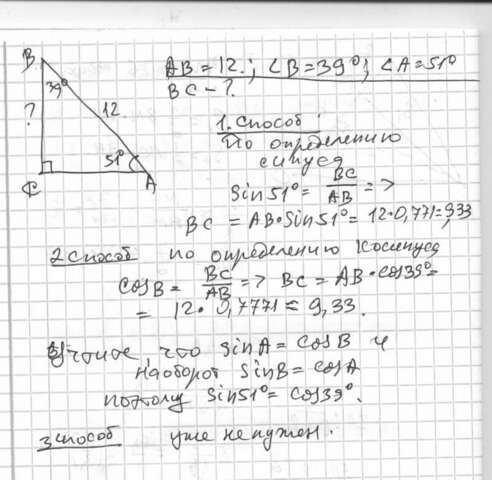 B
39°
?
12
51°
C
A
AB = 12.; ∠B = 39°; ∠A = 51°
BC - ?
1. Способ
По определению
синуса
Sin 51° = BC/AB =>
BC = AB·Sin 51° = 12·0,771 = 9,33
2 Способ по определению косинуса
cos B = BC/AB => BC = AB·cos39° =
= 12·0,7771 = 9,33.
Учтите, что sin A = cos B и
наоборот sin B = cos A
поэтому sin 51° = cos 39°.
3 способ уже не нужен.